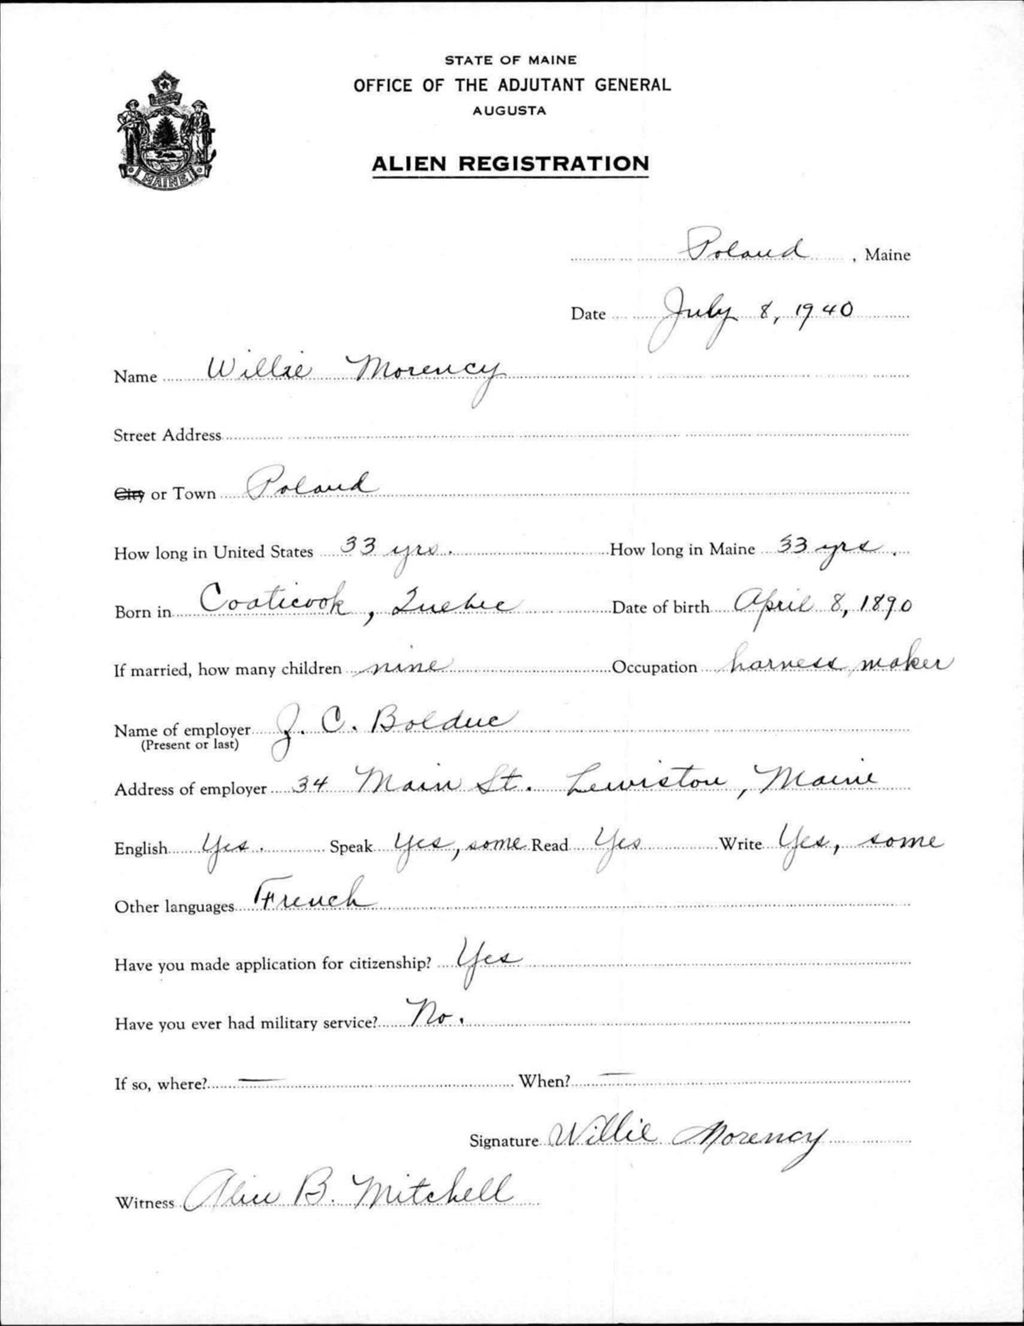 STATE OF MAINE
OFFICE OF THE ADJUTANT GENERAL
AUGUSTA
ALIEN REGISTRATION
MAINE
Poland, Maine
Date July 8, 1940
Name Willie Morency
Street Address
City or Town Poland
How long in United States 33 yrs. How long in Maine 33 yrs.
Born in Coaticook, Quebec Date of birth April 8, 1890
If married, how many children nine Occupation harness maker
Name of employer J. C. Bolduc
(Present or last)
Address of employer 34 Main St. Lewiston, Maine
English Yes. Speak Yes, some Read Yes Write Yes, some
Other languages French
Have you made application for citizenship? Yes
Have you ever had military service? No.
If so, where? — When? —
Signature Willie Morency
Witness Alice B. Mitchell